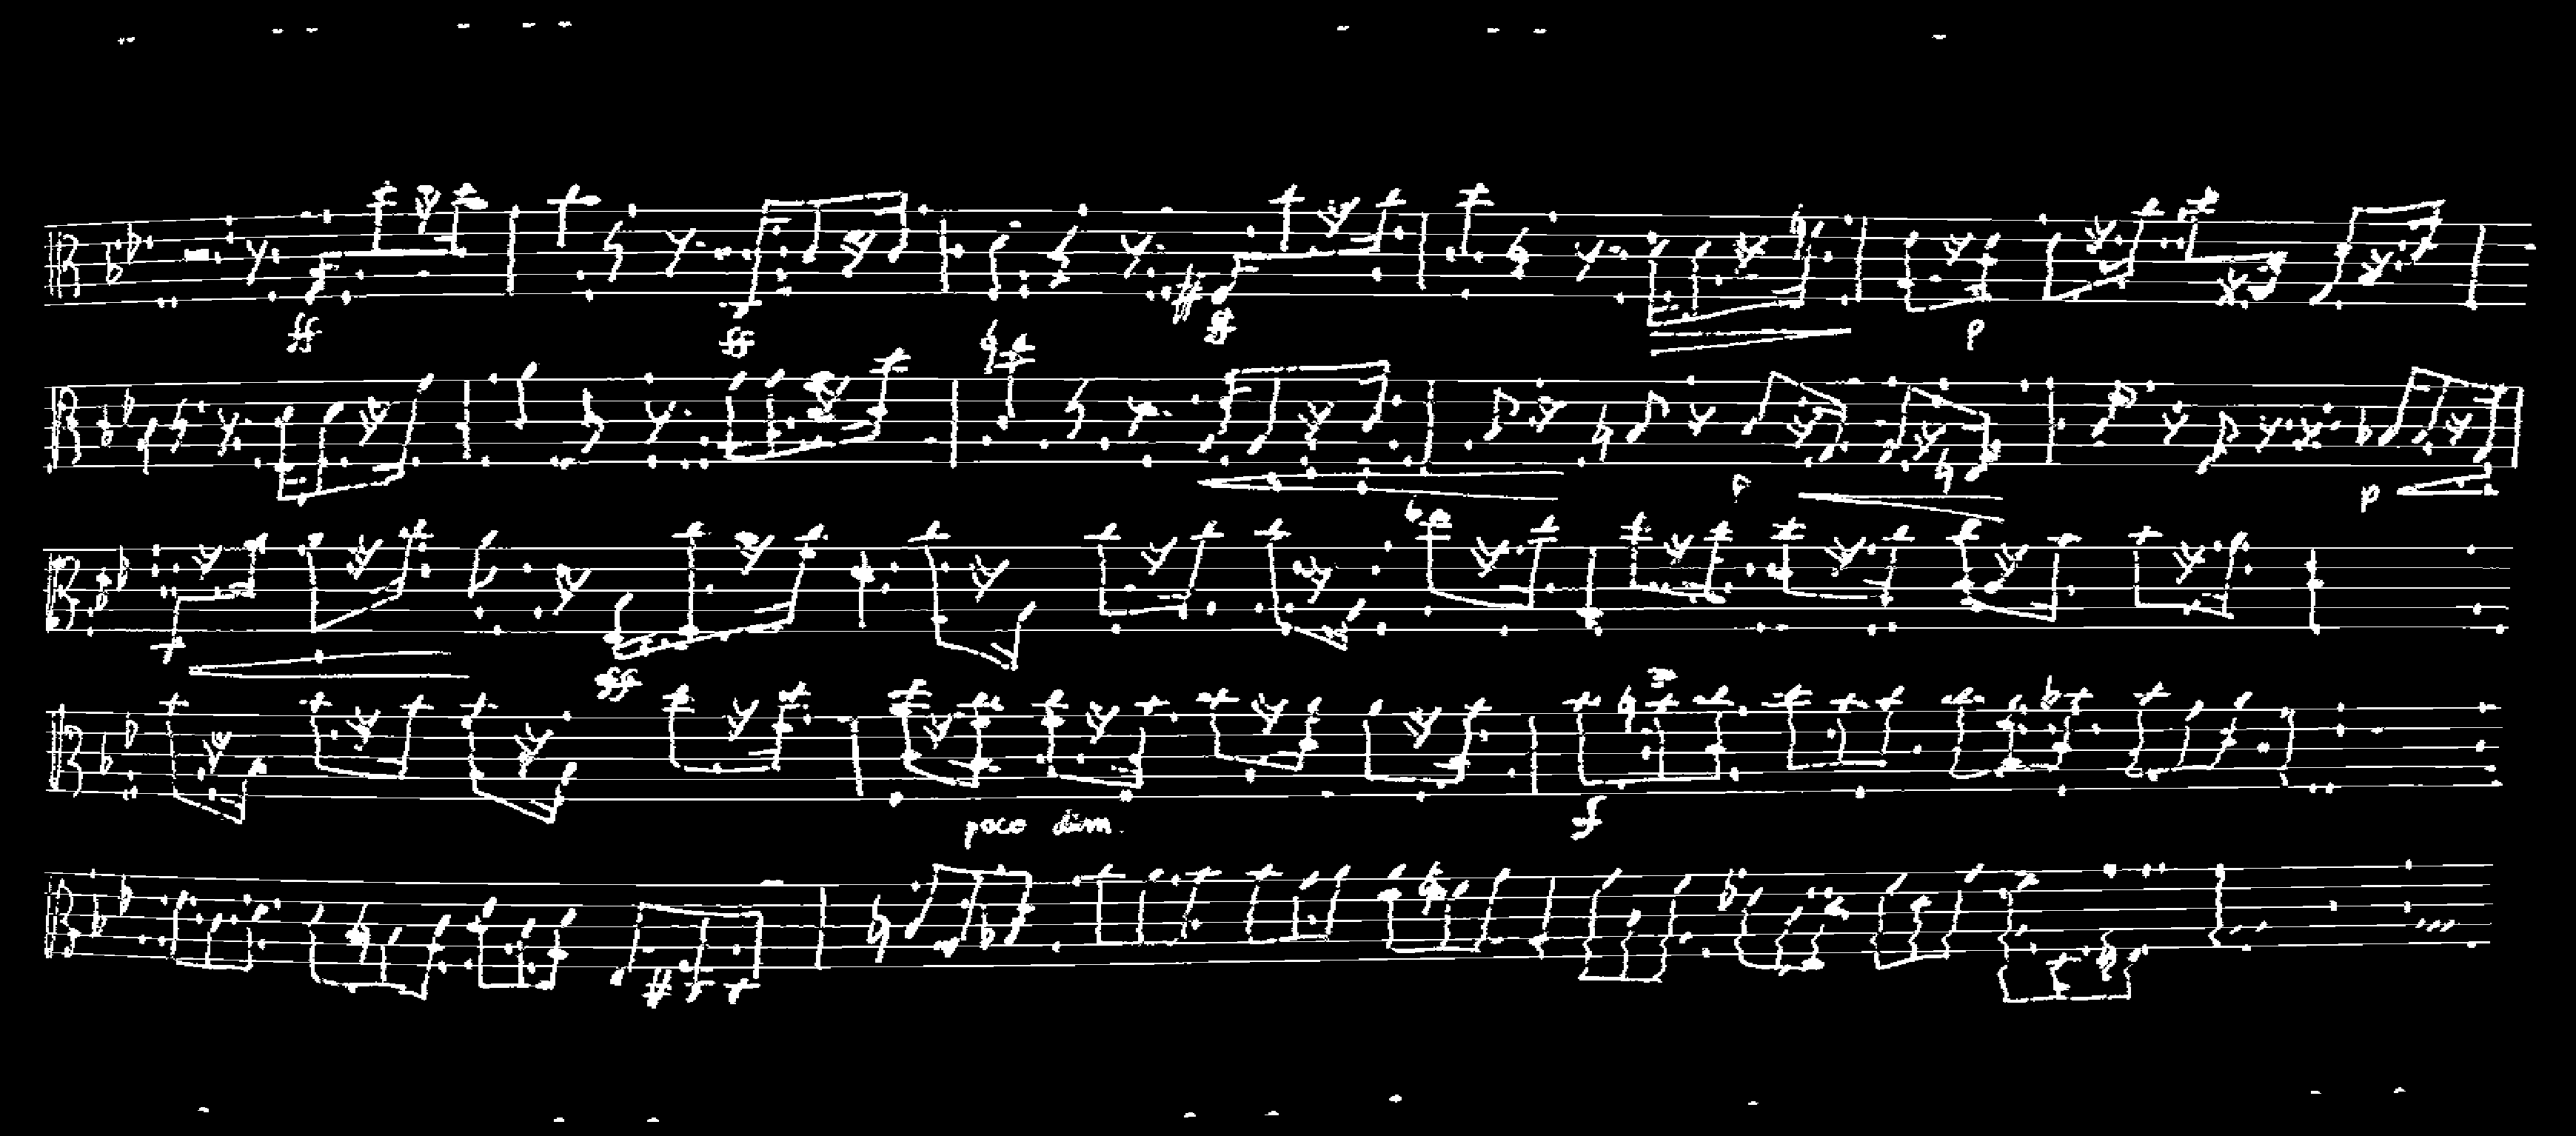 ff ff ff p
p p
ff
poco dim.
3
sf